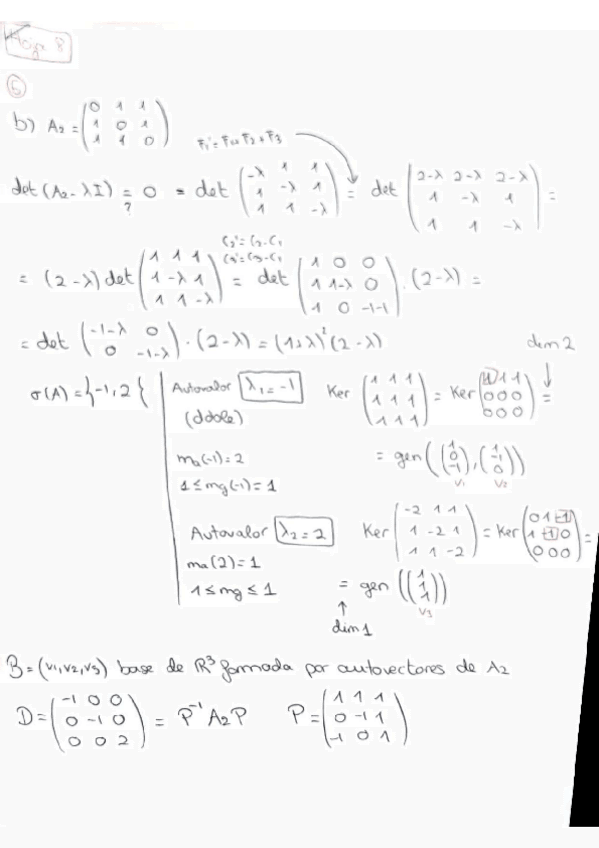 Hoja 8
5
b) A2 = (0 1 1; 1 0 1; 1 1 0)
F1' = F1+F2+F3
det (A2 - λI) = 0 = det (-λ 1 1; 1 -λ 1; 1 1 -λ) = det (2-λ 2-λ 2-λ; 1 -λ 1; 1 1 -λ) =
?
C2' = C2-C1
C3' = C3-C1
= (2-λ) det (1 1 1; 1 -λ 1; 1 1 -λ) = det (1 0 0; 1 1-λ 0; 1 0 -λ-1) · (2-λ) =
= det (-1-λ 0; 0 -1-λ) · (2-λ) = (1+λ)² (2-λ)
dim 2
σ(A) = {-1, 2{
Autovalor λ1 = -1
(doble)
Ker (1 1 1; 1 1 1; 1 1 1) = Ker (1 1 1; 0 0 0; 0 0 0) =
ma(-1) = 2
1 ≤ mg(-1) = 1
= gen ((1 0 -1), (1 -1 0))
v1 v2
Autovalor λ2 = 2
Ker (-2 1 1; 1 -2 1; 1 1 -2) = Ker (0 1 -1; 1 -1 0; 0 0 0) =
ma(2) = 1
1 ≤ mg ≤ 1
= gen ((1 1 1))
v3
dim 1
B = (v1, v2, v3) base de R³ formada por autovectores de A2
D = (-1 0 0; 0 -1 0; 0 0 2) = P⁻¹ A2 P P = (1 1 1; 0 -1 1; -1 0 1)